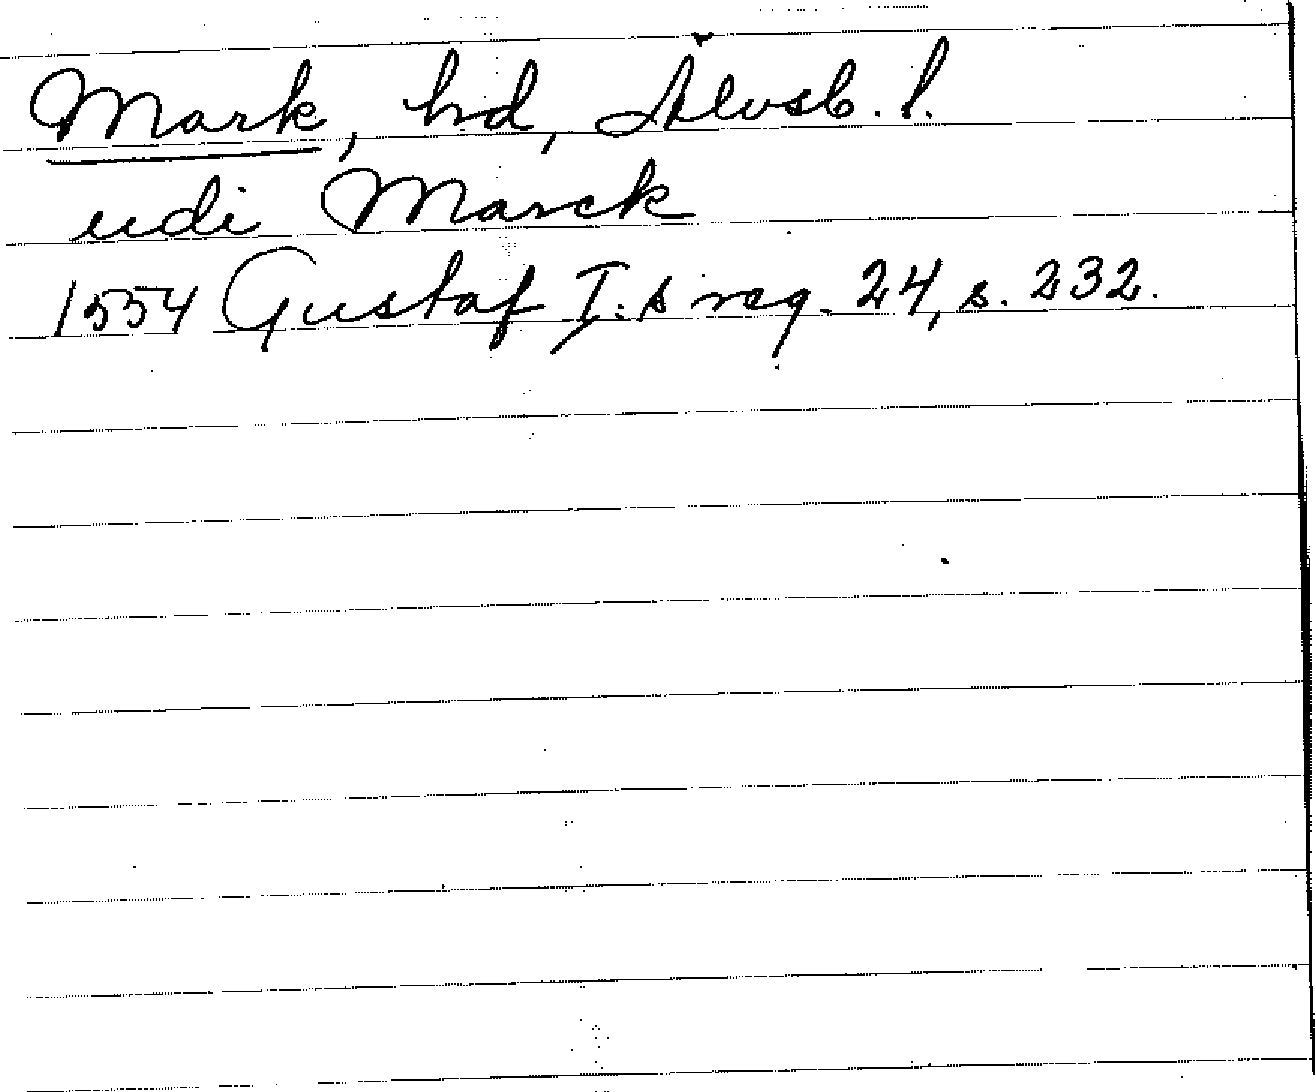 Mark, hd, Älvsb. l.
udi Marck
1554 Gustaf I:s reg. 24, s. 232.